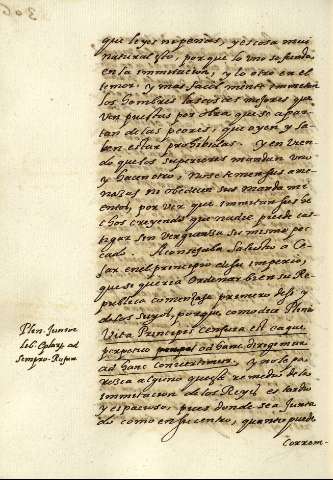 306
que leyes ni penas, y es cosa mui
natural esto, porque lo uno se funda
en la immitacion, y lo otro en el
temor. y mas facilmente imitan
los hombres las cosas mejores que
ven puestas por obra que se apar-
tan de las peores, que oyen y sa-
ben estar prohibidas. y en vien-
do que los superiores mandan uno
y hacen otro, ni se temen sus ame-
nazas ni obedecen sus mandamien-
tos, por ver que immitan sus he-
chos creyendo que nadie puede cas-
tigar sin verguenza su mismo pe-
cado. Aconsejaba Salustio a Ce-
sar en el principio de su imperio,
que si queria ordenar bien su Re-
publica comenzase primero de si y
de los suyos, porque como dice Plinio
Vita Principis censura est eaque
perpetua ad hanc dirigimur
ad hanc convertimur. y no le pa-
rezca alguno que este remedio de la
immitacion de los Reyes es tardio
y espacioso, pues donde sea junta
do como en su centro, quanto puede
Correm-
Plin. Junior
lib. Epist. ad
Sempro. Rufum